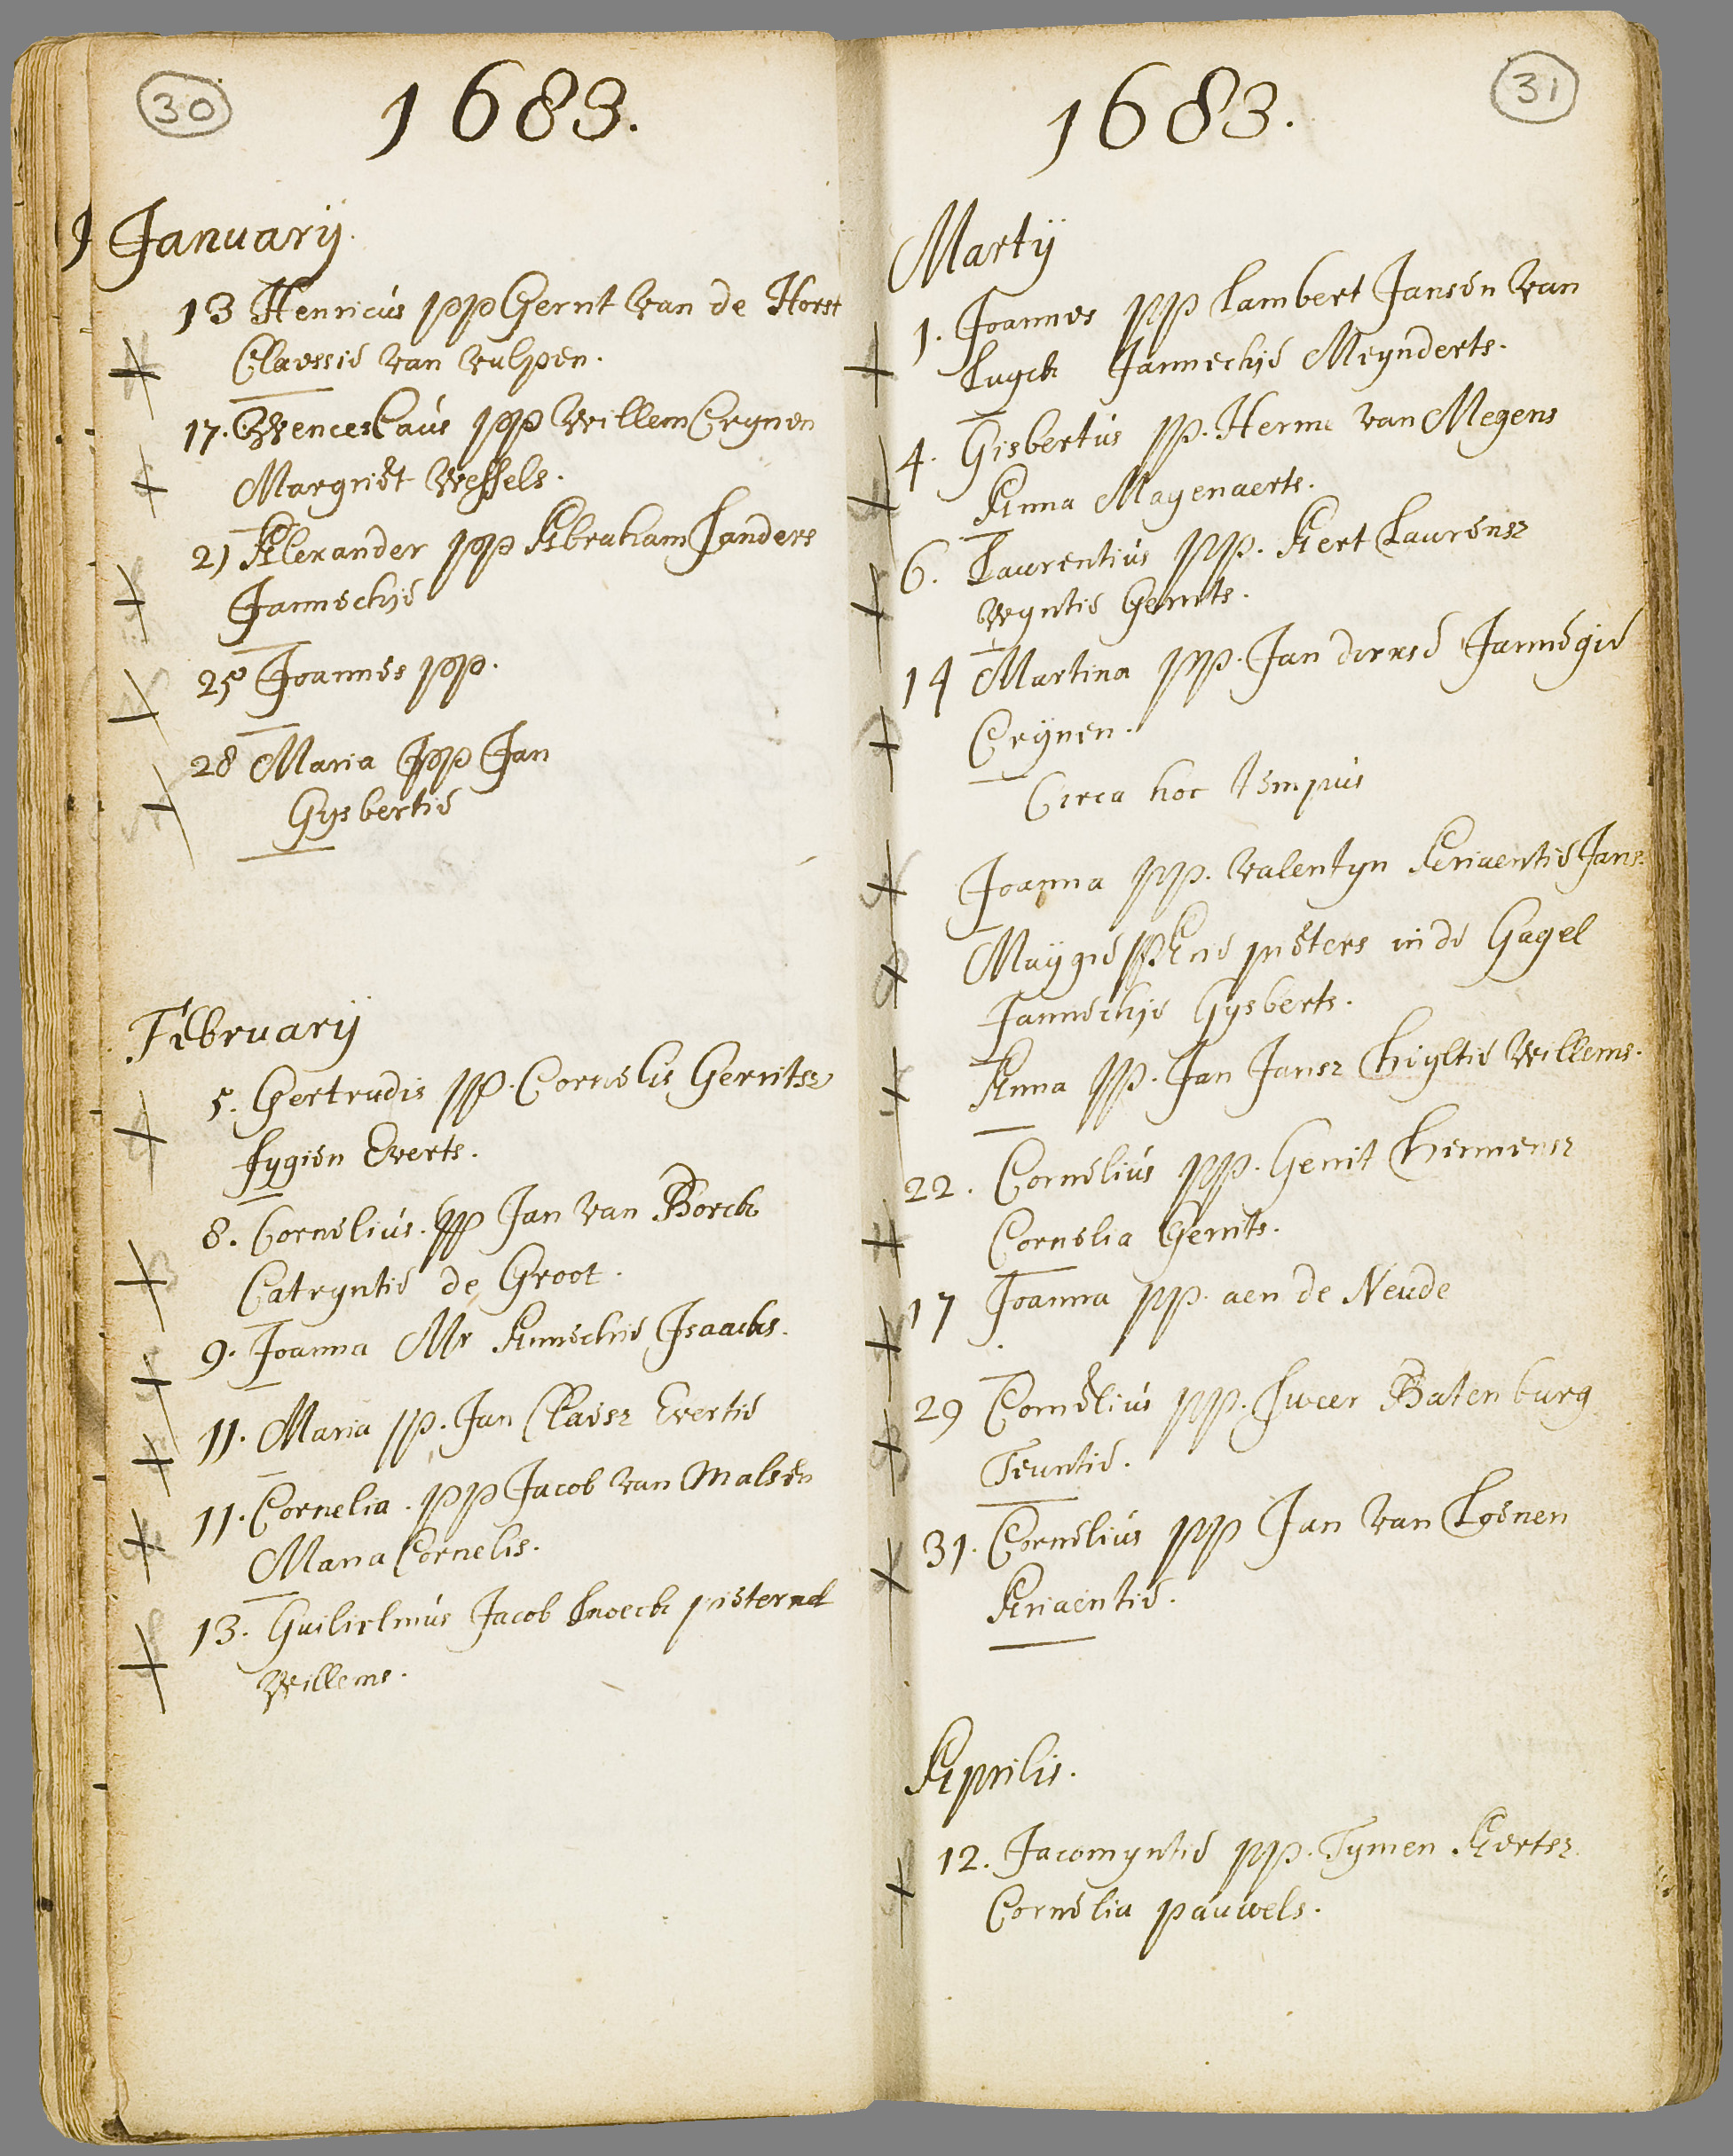 30
1683.
Januarij.
13 Henricus pp Gerrit van de Horst
Claessie van vulpen.
17. Wenceslaus pp Willem Crynen
Margriet Wessels.
21 Alexander pp Abraham Sanders
Jannechie
25 Joannes pp.
28 Maria pp Jan
Gysbertie
Februarij
5. Gertrudis pp. Cornelis Gerritsz
fygien Everts.
8. Cornelius. pp Jan van Borck
Catryntie de Groot.
9. Joanna Mr Annechie Isaacks.
11. Maria pp. Jan Claesz Evertie
11. Cornelia. pp Jacob van Malsen
Maria Cornelis.
13. Guilielmus Jacob Snoeck pieternel
Willems.
31
1683.
Martij
1. Joannes pp Lambert Jansen van
Luyck Jannechie Meynderts.
4. Gisbertus pp. Herme van Megens
Anna Magenaerts.
6. Laurentius pp. Aert Laurensz
Wyntie Gerrits.
14 Martina pp. Jan dirxse Jannegie
Crijnen.
Circa hoc tempus
Joanna pp. valentyn Ariaentie Jans.
Maijgie pp Arie pieters in de Gagel
Jannechie Gysberts.
Anna pp. Jan Jansz Hiyltie Willems.
22. Cornelius pp. Gerrit Hermensz
Cornelia Gerrits.
17 Joanna pp. aen de Neude
29 Cornelius pp. Sweer Batenburg
Teuntie.
31. Cornelius pp Jan van Loenen
Ariaentie.
Aprilis.
12. Jacomyntie pp. Tymen Aertsz
Cornelia pauwels.